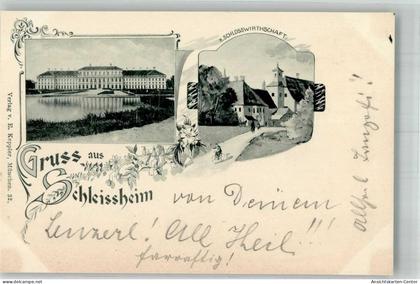 K. SCHLOSSWIRTHSCHAFT.
Verlag v. E. Keppler, München. 32.
Gruss aus
Schleissheim
von Deinem
Lenzerl! All Heil!!!
Ansichtskarten-Center